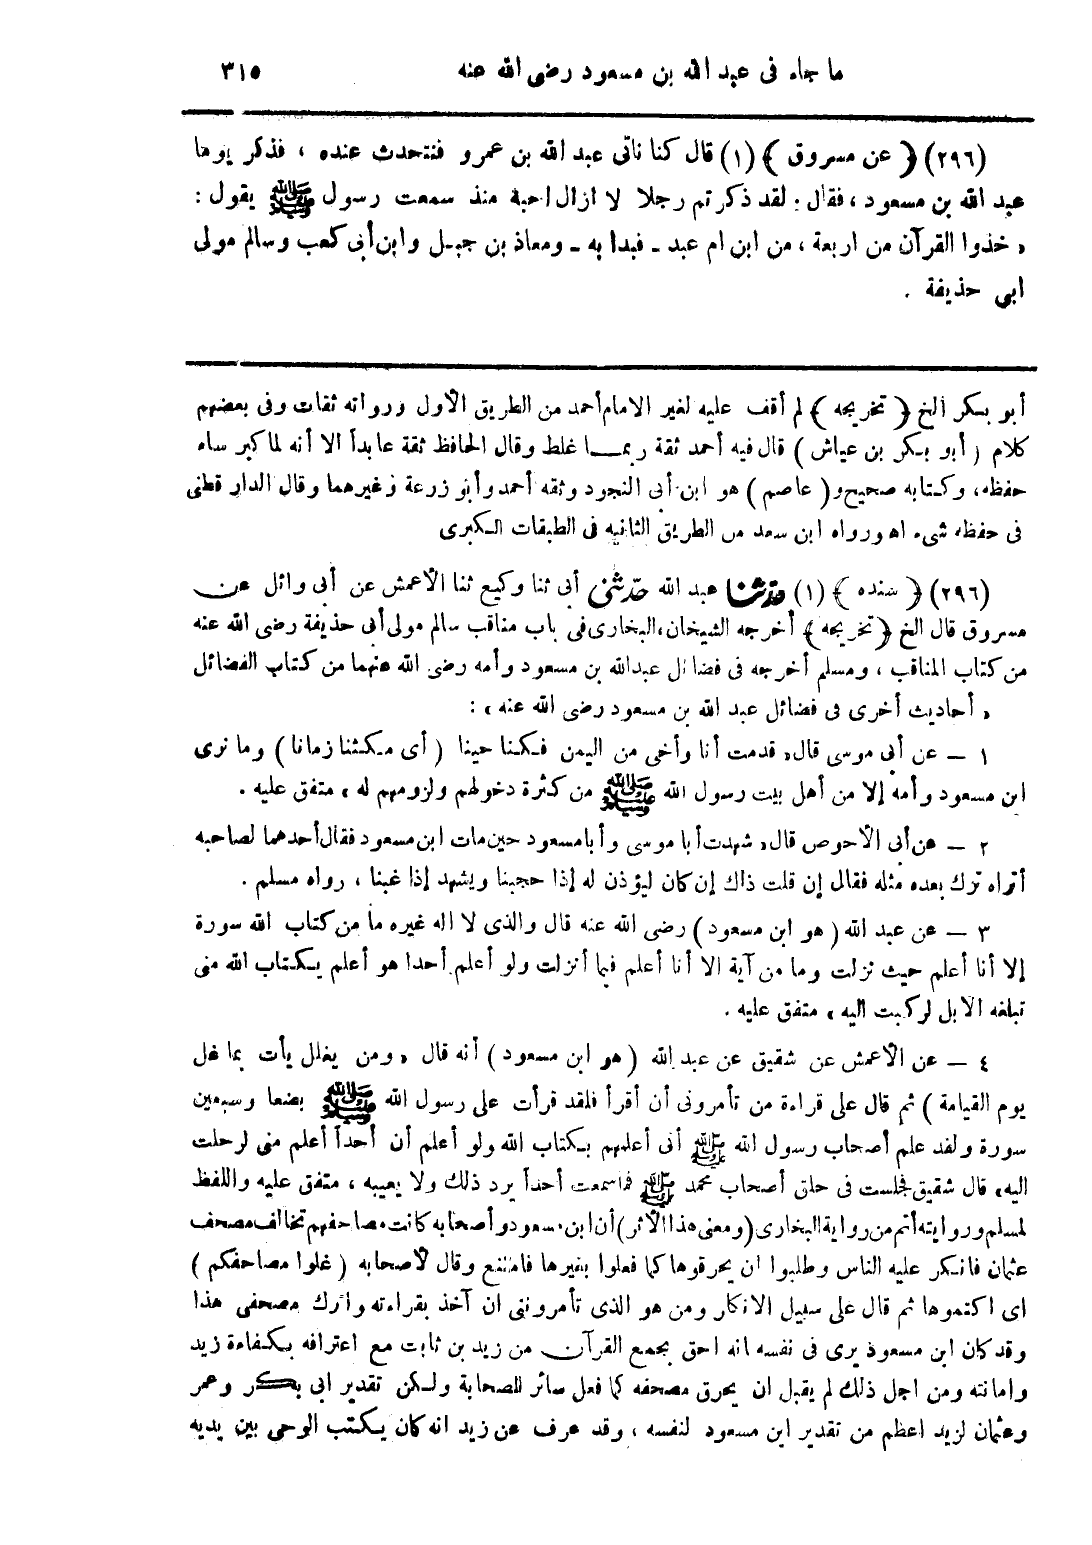 ما جاء فى عبد الله بن مسعود رضى الله عنه ٣١٥
(٢٩٦) ﴿ عن مسروق ﴾ (١) قال كنا ناتى عبد الله بن عمرو فنتحدث عنده ، فذكر يوما
عبد الله بن مسعود ، فقال : لقد ذكرتم رجلا لا ازال احبة منذ سمعت رسول ﷺ يقول :
« خذوا القرآن من اربعة ، من ابن ام عبد ـ فبدا به ـ ومعاذ بن جبل وابن أبى كعب وسالم مولى
ابى حذيفة .
أبو بكر الخ ﴿ تخريجه ﴾ لم أقف عليه لغير الامام أحمد من الطريق الأول ورواته ثقات وفى بعضهم
كلام ( أبو بكر بن عياش ) قال فيه أحمد ثقة ربمـا غلط وقال الحافظ ثقة عابدا الا أنه لما كبر ساء
حفظه، وكتابه صحيح و( عاصم ) هو ابن أبى النجود وثقه أحمد وأبو زرعة وغيرهما وقال الدار قطنى
فى حفظه شىء اه ورواه ابن سعد من الطريق الثانيه فى الطبقات الكبرى
(٢٩٦) ﴿ سنده ﴾ (١) حدثنا عبد الله حدثنى أبى ثنا وكيع ثنا الأعمش عن أبى وائل عن
مسروق قال الخ ﴿تخريجه﴾ أخرجه الشيخان، البخارى فى باب مناقب سالم مولى أبى حذيفة رضى الله عنه
من كتاب المناقب ، ومسلم أخرجه فى فضائل عبد الله بن مسعود وأمه رضى الله عنهما من كتاب الفضائل
« أحاديث أخرى فى فضائل عبد الله بن مسعود رضى الله عنه » :
١ – عن أبى موسى قال« قدمت أنا وأخى من اليمن فكنا حينا ( أى مكثنا زمانا ) وما نرى
ابن مسعود وأمه إلا من أهل بيت رسول الله ﷺ من كثرة دخولهم ولزومهم له » متفق عليه .
٢ – عن أبى الأحوص قال« شهدت أبا موسى وأبا مسعود حين مات ابن مسعود فقال أحدهما لصاحبه
أتراه ترك بعده مثله فقال إن قلت ذاك إن كان ليؤذن له إذا حجبنا ويشهد إذا غبنا ، رواه مسلم .
٣ – عن عبد الله ( هو ابن مسعود ) رضى الله عنه قال والذى لا اله غيره ما من كتاب الله سورة
إلا أنا أعلم حيث نزلت وما من آية الا أنا أعلم فيما أنزلت ولو أعلم أحدا هو أعلم بكتاب الله منى
تبلغه الابل لركبت اليه » متفق عليه .
٤ – عن الأعمش عن شقيق عن عبد الله ( هو ابن مسعود ) أنه قال « ومن يغلل يأت بما غل
يوم القيامة ) ثم قال على قراءة من تأمرونى أن أقرأ فلقد قرأت على رسول الله ﷺ بضعا وسبعين
سورة ولقد علم أصحاب رسول الله ﷺ أنى أعلمهم بكتاب الله ولو أعلم أن أحداً أعلم منى لرحلت
اليه» قال شقيق فجلست فى حلق أصحاب محمد ﷺ فما سمعت أحداً يرد ذلك ولا يعيبه ، متفق عليه واللفظ
لمسلم وروايته أتم من رواية البخارى (ومعنى هذا الأثر) أن ابن مسعود وأصحابه كانت مصاحفهم تخالف مصحف
عثمان فانكر عليه الناس وطلبوا ان يحرقوها كما فعلوا بغيرها فامتنع وقال لأصحابه ( غلوا مصاحفكم )
اى اكتموها ثم قال على سبيل الانكار ومن هو الذى تأمروننى ان آخذ بقراءته واترك مصحفى هذا
وقد كان ابن مسعود يرى فى نفسه انه احق بجمع القرآن من زيد بن ثابت مع اعترافه بكفاءة زيد
وامانته ومن اجل ذلك لم يقبل ان يحرق مصحفه كما فعل سائر الصحابة ولكن تقدير ابى بكر وعمر
وعثمان لزيد اعظم من تقدير ابن مسعود لنفسه ، وقد عرف عن زيد انه كان يكتب الوحى بين يديه